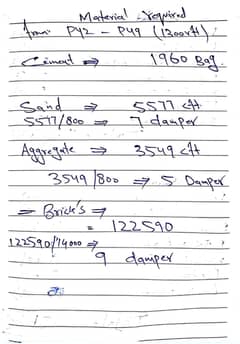 Material required
from P42 - P49 (1300 rft)
Cement ⇒ 1960 Bag
Sand ⇒ 5577 cft
5577/800 ⇒ 7 damper
Aggregate ⇒ 3549 cft
3549/800 ⇒ 5 Damper
= Brick's ⇒
= 122590
122590/14000 ⇒
9 damper